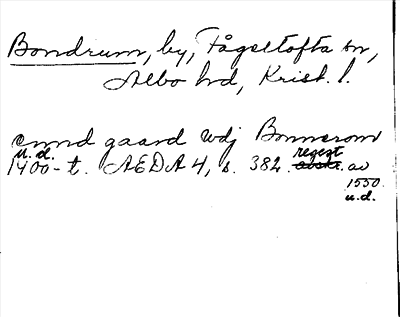 Bondrum, by, Fågeltofta sn,
Albo hd, Krist. l.
ennd gaard udj Bonnerom
u.d.
1400-t. AEDA 4, s. 382. regest av
1550
u.d.